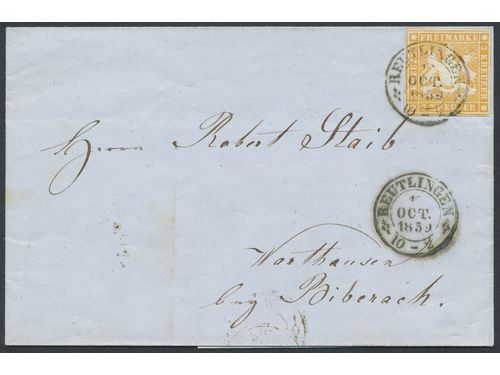 FREIMARKE
REUTLINGEN
OCT.
1859
Herrn Robert Staib
REUTLINGEN
OCT.
1859
Warthausen
Biberach.